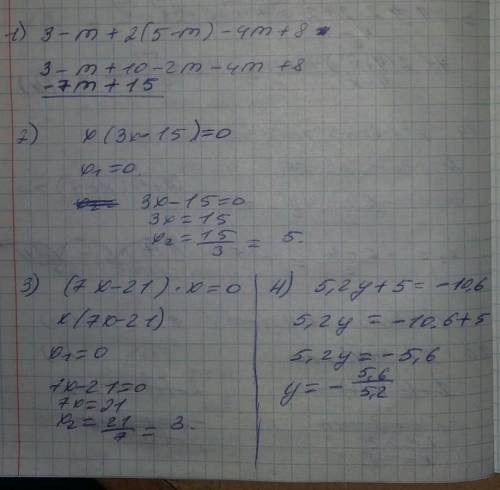 1) 3 - m + 2(5 - m) - 4m + 8
3 - m + 10 - 2m - 4m + 8
-7m + 15
2) x(3x - 15) = 0
x₁ = 0.
3x - 15 = 0
3x = 15
x₂ = 15/3 = 5.
3) (7x - 21) · x = 0
x(7x - 21)
x₁ = 0
7x - 21 = 0
7x = 21
x₂ = 21/7 = 3.
4) 5,2y + 5 = -10,6
5,2y = -10,6 + 5
5,2y = -5,6
y = - 5,6/5,2